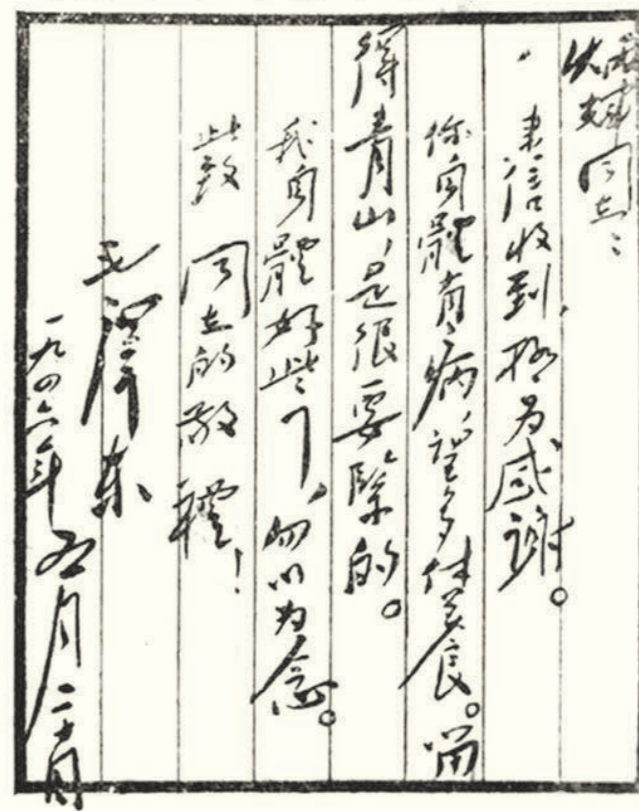 炳輝同志:
来信收到,極为感謝。
你身體有病,望多休養。留
得青山,是很要緊的。
我身體好些了,勿以为念。
此致 同志的敬禮!
毛澤東
一九四六年五月二十日